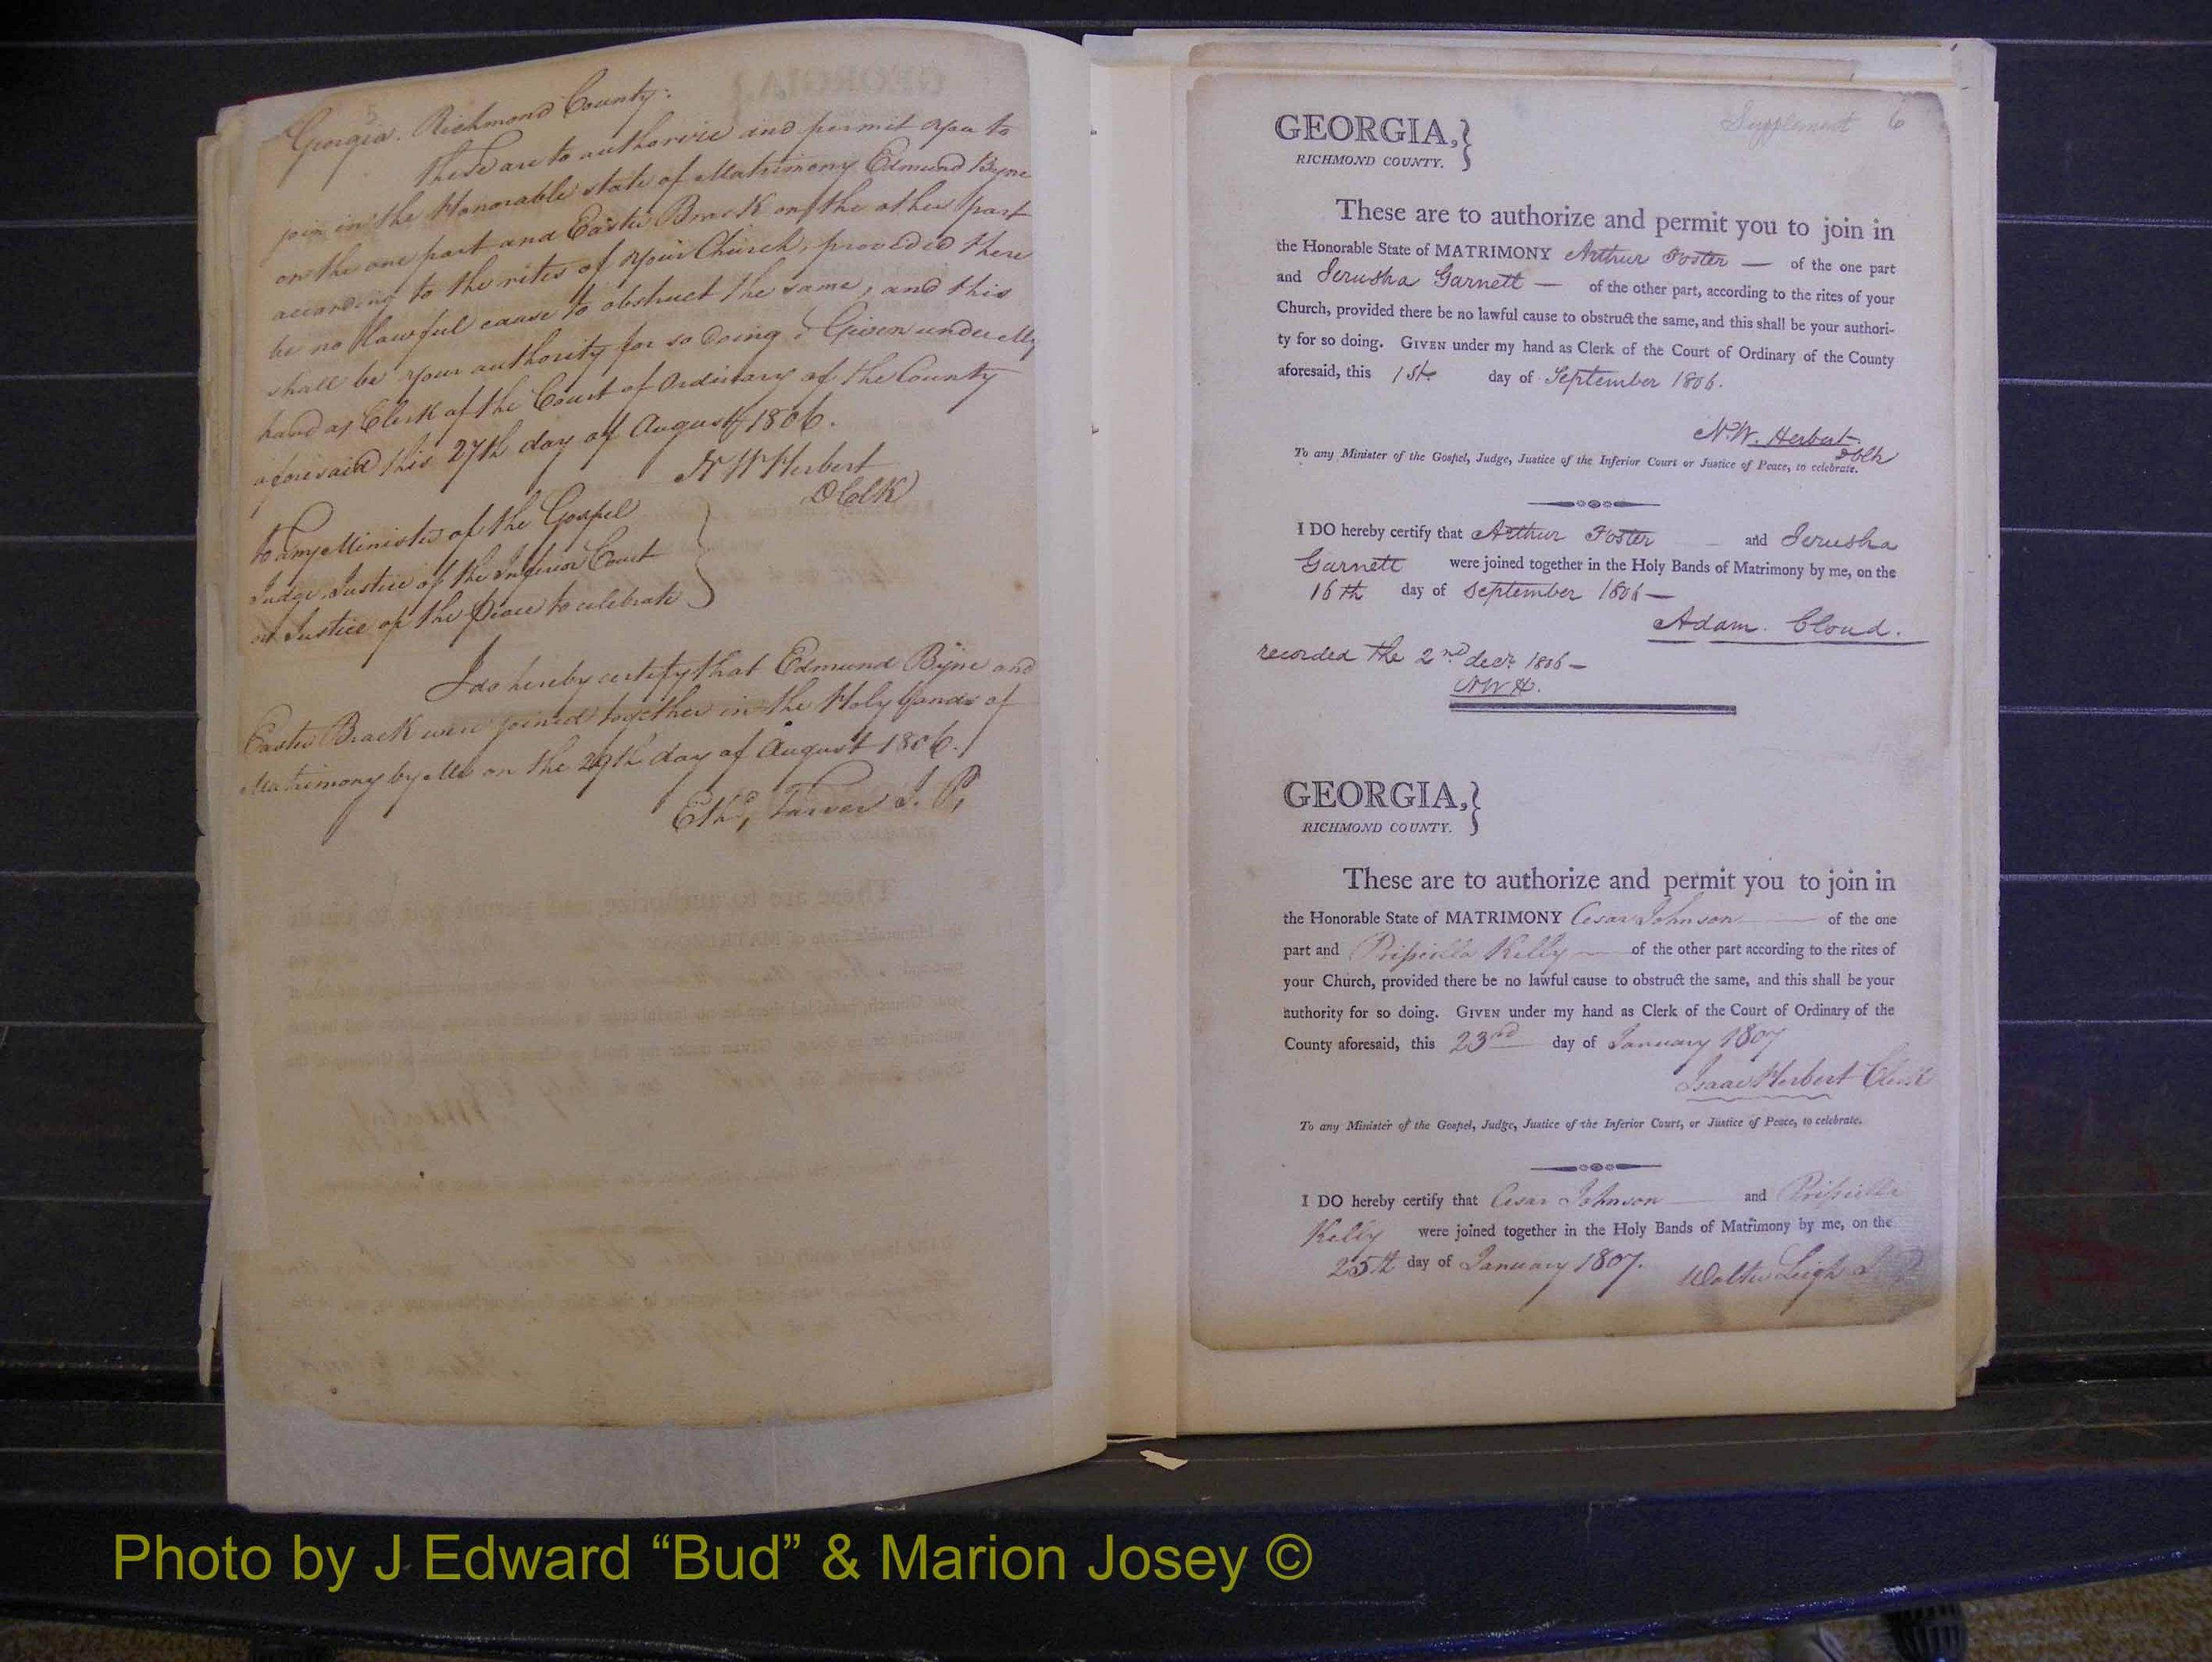 5
Georgia. Richmond County:
These are to authorize and permit you to
join in the Honorable state of Matrimony Edmund Byne
on the one part and Easter Brack on the other part
according to the rites of your Church, provided there
be no lawful cause to obstruct the same, and this
shall be your authority for so doing. Given under My
hand as Clerk of the Court of Ordinary of the County
aforesaid this 27th day of August 1806.
N W Herbert
D Clk
To any Minister of the Gospel
Judge, Justice of the Inferior Court
or Justice of the Peace to celebrate
I do hereby certify that Edmund Byne and
Easter Brack were joined together in the Holy bands of
Matrimony by Me on the 29th day of August 1806.
Ethd, Tarver J. P,
Supplement 6
GEORGIA,}
RICHMOND COUNTY.
These are to authorize and permit you to join in
the Honorable State of MATRIMONY Arthur Foster — of the one part
and Jerusha Garnett — of the other part, according to the rites of your
Church, provided there be no lawful cause to obstruct the same, and this shall be your authori-
ty for so doing. GIVEN under my hand as Clerk of the Court of Ordinary of the County
aforesaid, this 1st. day of September 1806.
N. W. Herbert.
Dclk
To any Minister of the Gospel, Judge, Justice of the Inferior Court or Justice of Peace, to celebrate.
I DO hereby certify that Arthur Foster and Jerusha
Garnett were joined together in the Holy Bands of Matrimony by me, on the
16th day of September 1806 —
Adam. Cloud.
recorded the 2nd decr. 1806 —
NWH.
GEORGIA,}
RICHMOND COUNTY.
These are to authorize and permit you to join in
the Honorable State of MATRIMONY Cesar Johnson — of the one
part and Priscilla Kelly — of the other part according to the rites of
your Church, provided there be no lawful cause to obstruct the same, and this shall be your
authority for so doing. GIVEN under my hand as Clerk of the Court of Ordinary of the
County aforesaid, this 23rd day of January 1807
Isaac Herbert Clerk
To any Minister of the Gospel, Judge, Justice of the Inferior Court, or Justice of Peace, to celebrate.
I DO hereby certify that Cesar Johnson and Priscilla
Kelly were joined together in the Holy Bands of Matrimony by me, on the
25th day of January 1807.
Walter Leigh J
Photo by J Edward “Bud” & Marion Josey ©